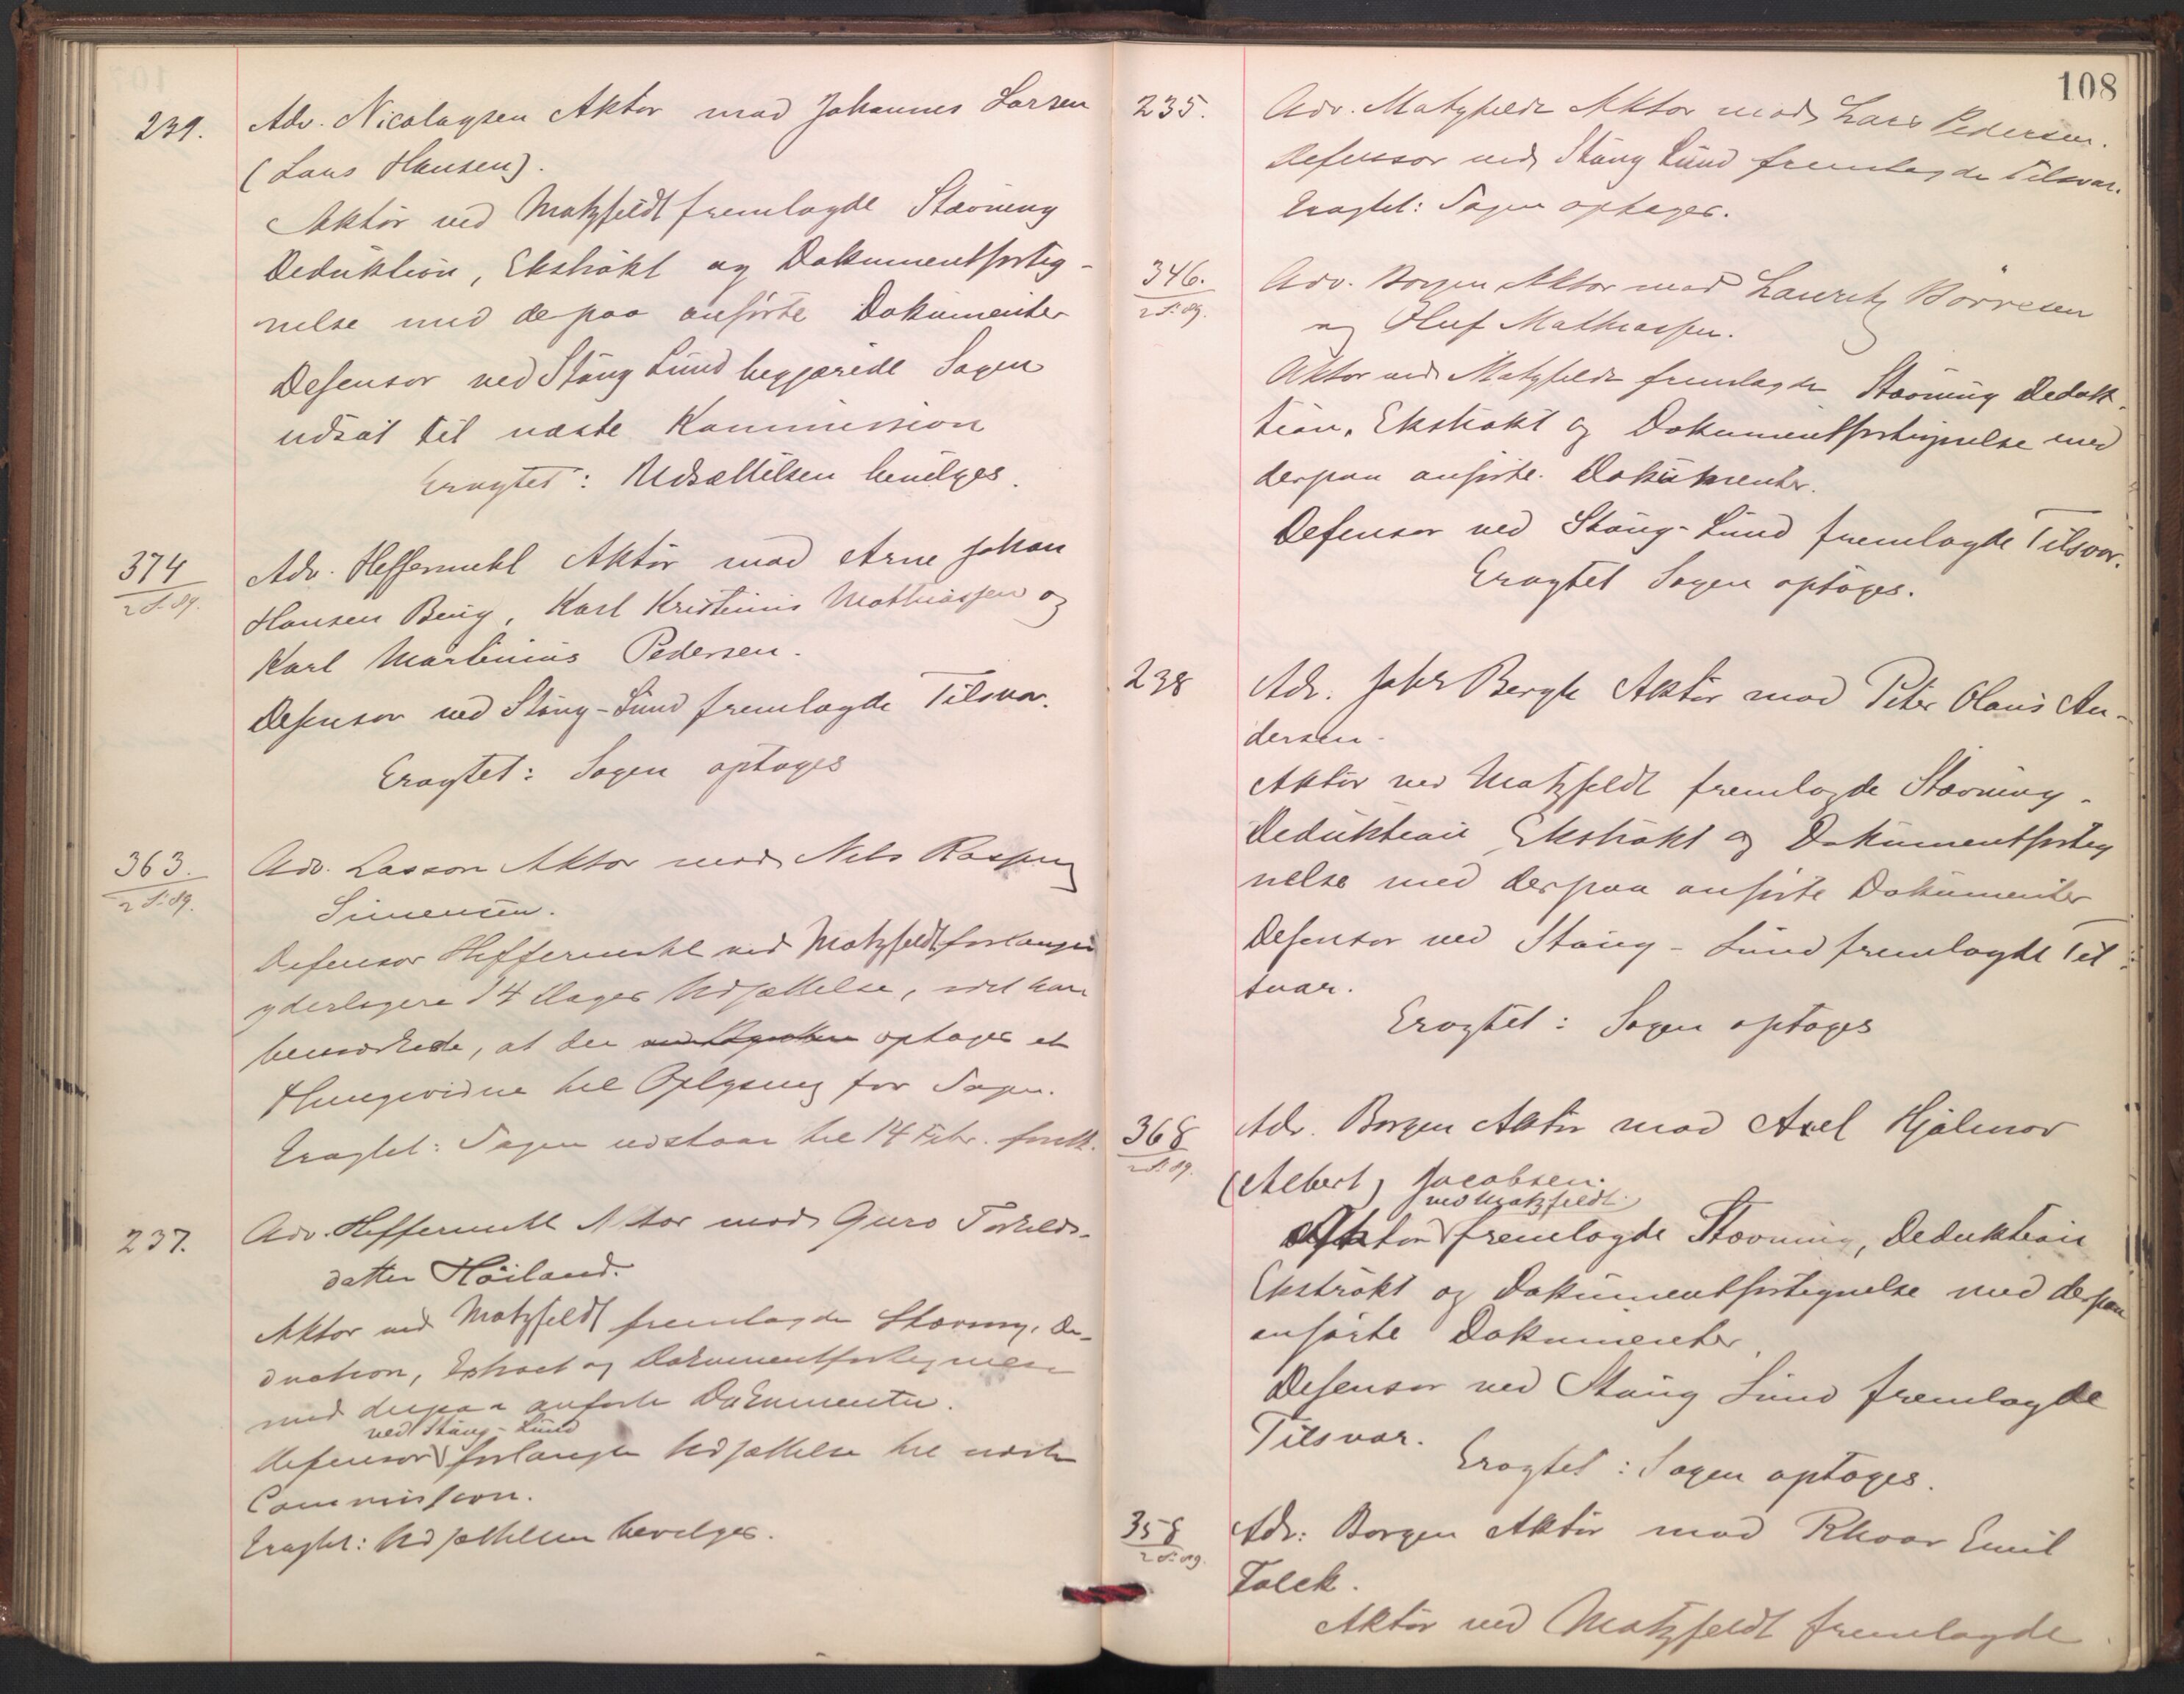 239. Adv. Nicolaysen Aktor mod Johannes Larsen
(Lars Hansen).
Aktor ved Matzfeldt fremlagde Stævning
Deduktion, Ekstrakt og Dokumentforteg-
nelse med de paa anførte Dokumenter
Defensor ved Stang Lund begjærede Sagen
udsat til næste Kommission
Eragtet: Udsættelsen bevilges.
374
2 S. 89.
Adv. Heffermehl Aktor mod Arne Johan
Hansen Berg, Karl Kristinius Mathiassen og
Karl Martinius Pedersen.
Defensor ved Stang-Lund fremlagde Tilsvar.
Eragtet: Sagen optages
363.
2 S. 89.
Adv. Lasson Aktor mod Nils
Simensen.
Defensor Heffermehl ved Matzfeldt forlangte
yderligere 14 Dages Udsættelse, idet han
bemærkede, at der optages et
Thingsvidne til Oplysning for Sagen.
Eragtet: Sagen udstaar til 14 Febr. førstk.
237. Adv. Heffermehl Aktor mod Guro Torkelds-
datter Høiland.
Aktor ved Matzfeldt fremlagde Stævning, De-
duction, Extract og Dokumentfortegnelse
med derpaa anførte Dokumenter.
ved Stang-Lund
Defensor forlangte Udsættelse til næste
Commission.
Eragtet: Udsættelsen bevilges.
108
235. Adv. Matzfeldt Aktor mod Lars Pedersen.
Defensor ved Stang Lund fremlagde Tilsvar.
Eragtet: Sagen optages.
346.
2 S. 89.
Adv. Borgen Aktor mod Lauritz Børresen
og Oluf Mathiassen.
Aktor ved Matzfeldt fremlagde Stævning Deduk-
tion, Ekstrakt og Dokumentfortegnelse med
derpaa anførte Dokumenter.
Defensor ved Stang-Lund fremlagde Tilsvar.
Eragtet Sagen optages.
238 Adv. Johs Bergh Aktor mod Peter Olaus An-
dersen.
Aktor ved Matzfeldt fremlagde Stævning-
Deduktion Ekstrakt og Dokumentforteg
nelse med derpaa anførte Dokumenter
Defensor ved Stang-Lund fremlagde Til-
svar.
Eragtet: Sagen optages
368
2 S. 89.
Adv. Borgen Aktor mod Axel Hjalmar
(Albert) Jacobsen.
ved Matzfeldt
Aktor fremlagde Stævning, Deduktion
Ekstrakt og Dokumentfortegnelse med derpaa
anførte Dokumenter
Defensor ved Stang Lund fremlagde
Tilsvar.
Eragtet: Sagen optages.
358
2 S. 89.
Adv: Borgen Aktor mod Rhoar Emil
Falck.
Aktor ved Matzfeldt fremlagde